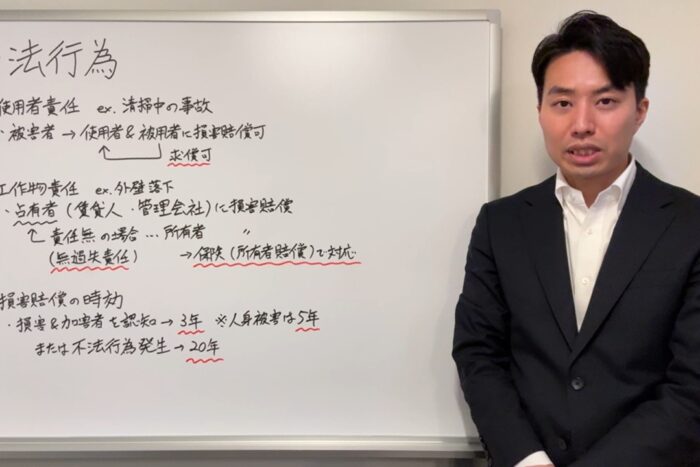 法行為
使用者責任 ex. 清掃中の事故
・被害者 → 使用者 & 被用者に損害賠償可
求償可
工作物責任 ex. 外壁落下
・占有者 (賃貸人・管理会社) に損害賠償
責任無の場合 … 所有者 〃
(無過失責任) → 保険 (所有者賠償) で対応
損害賠償の時効
・損害 & 加害者を認知 → 3年 ※人身被害は5年
または不法行為発生 → 20年